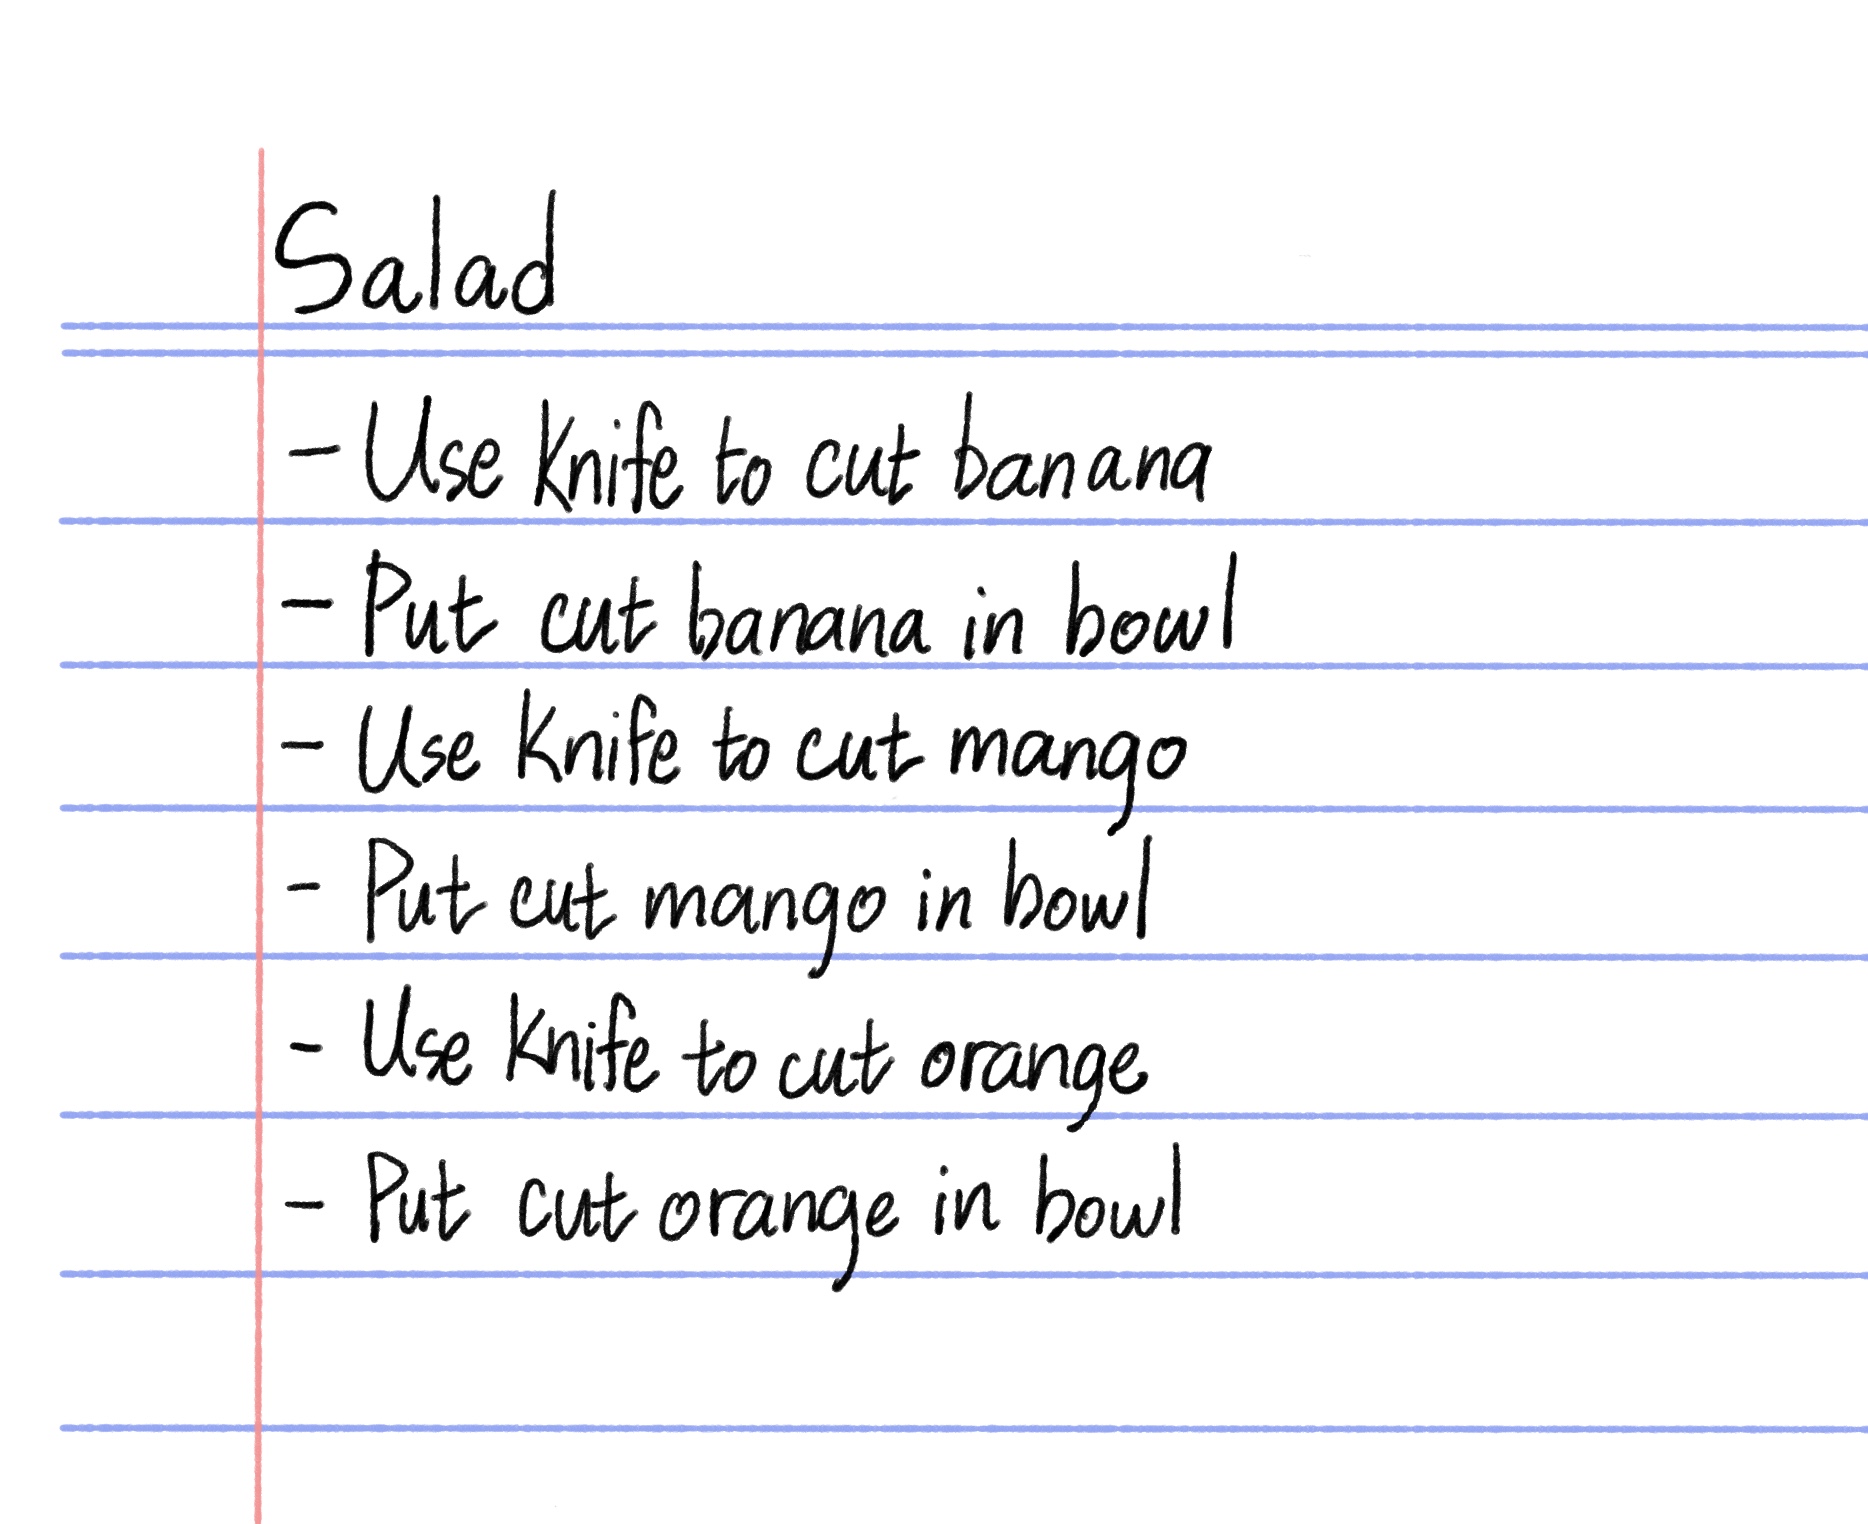 Salad
- Use knife to cut banana
- Put cut banana in bowl
- Use knife to cut mango
- Put cut mango in bowl
- Use knife to cut orange
- Put cut orange in bowl